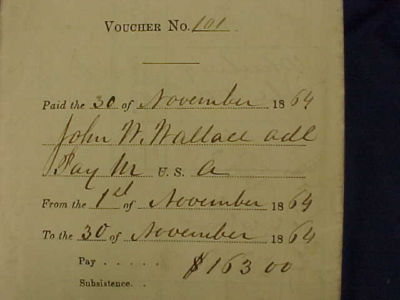 VOUCHER NO. 101
Paid the 30 of November 1864
John W. Wallace adl
Pay M U. S. A
From the 1st of November 1864
To the 30 of November 1864
Pay . . . . . $163 00
Subsistence. . .